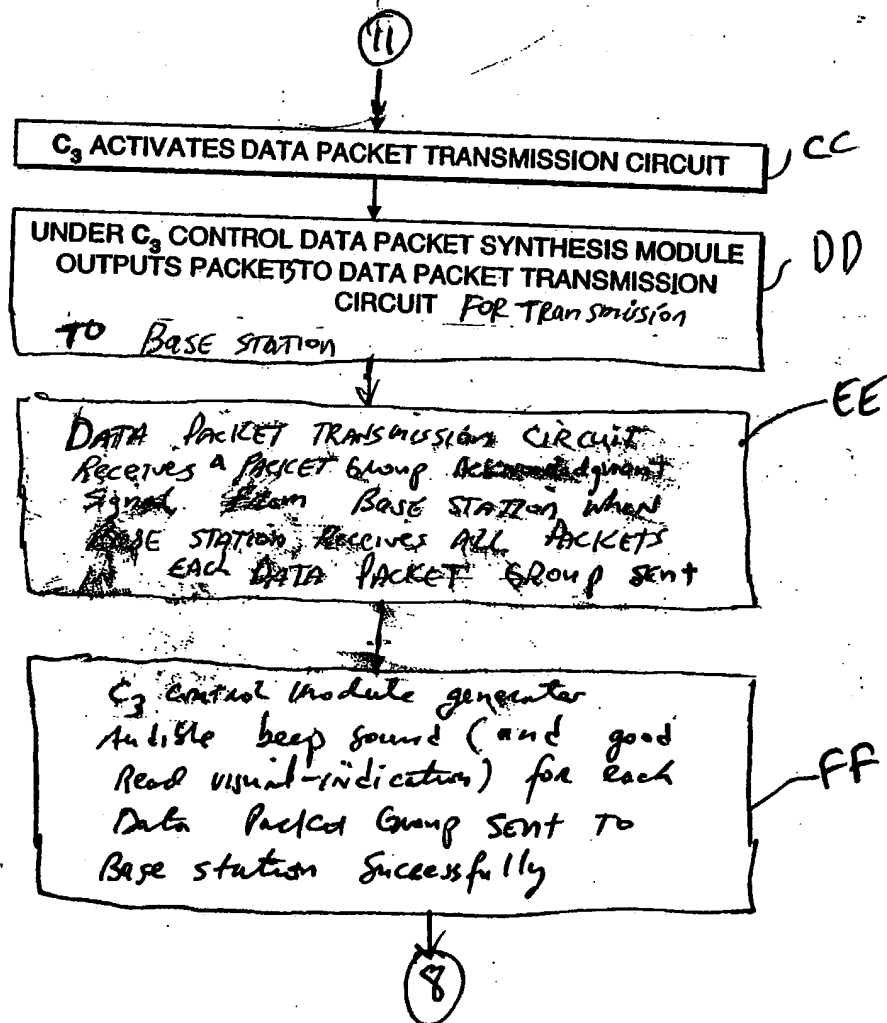 11
C₃ ACTIVATES DATA PACKET TRANSMISSION CIRCUIT
CC
UNDER C₃ CONTROL DATA PACKET SYNTHESIS MODULE
OUTPUTS PACKETS TO DATA PACKET TRANSMISSION
CIRCUIT FOR Transmission
TO BASE STATION
DD
DATA PACKET TRANSMISSION CIRCUIT
Receives a PACKET Group Acknowledgment
Signal From BASE STATION when
BASE STATION Receives ALL PACKETS
EACH DATA PACKET GROUP SENT
EE
C₃ control module generator
Audible beep sound (and good
Read visual-indication) for each
Data Packet Group SENT TO
Base station Successfully
FF
8